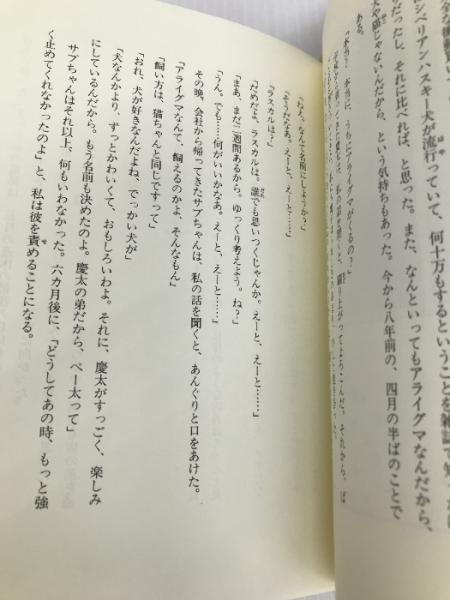 シベリアンハスキー犬が流行っていて、何十万もするということを雑誌で知った
だったし、それに比べれば、と思った。また、なんといってもアライグマなんだから、
犬や猫じゃないんだから、という気持ちもあった。今から八年前の、四月の半ばのことで
「ねえ、なんて名前にしようか?」
「そうだなあ。えーと、えーと……」
「ラスカルは?」
「だめだよ、ラスカルは。誰でも思いつくじゃんか。えーと、えーと……」
「まあ、まだ二週間あるから。ゆっくり考えよう。ね?」
「うん。でも……何がいいかなあ。えーと、えーと……」
その晩、会社から帰ってきたサブちゃんは、私の話を聞くと、あんぐりと口をあけた。
「アライグマなんて、飼えるのかよ、そんなもん」
「飼い方は、猫ちゃんと同じですって」
「おれ、犬が好きなんだよね、でっかい犬が」
「犬なんかより、ずっとかわいくて、おもしろいわよ。それに、慶太がすっごく、楽しみ
にしているんだから。もう名前も決めたのよ。慶太の弟だから、ぺー太って」
サブちゃんはそれ以上、何もいわなかった。六カ月後に、「どうしてあの時、もっと強
く止めてくれなかったのよ」と、私は彼を責めることになる。